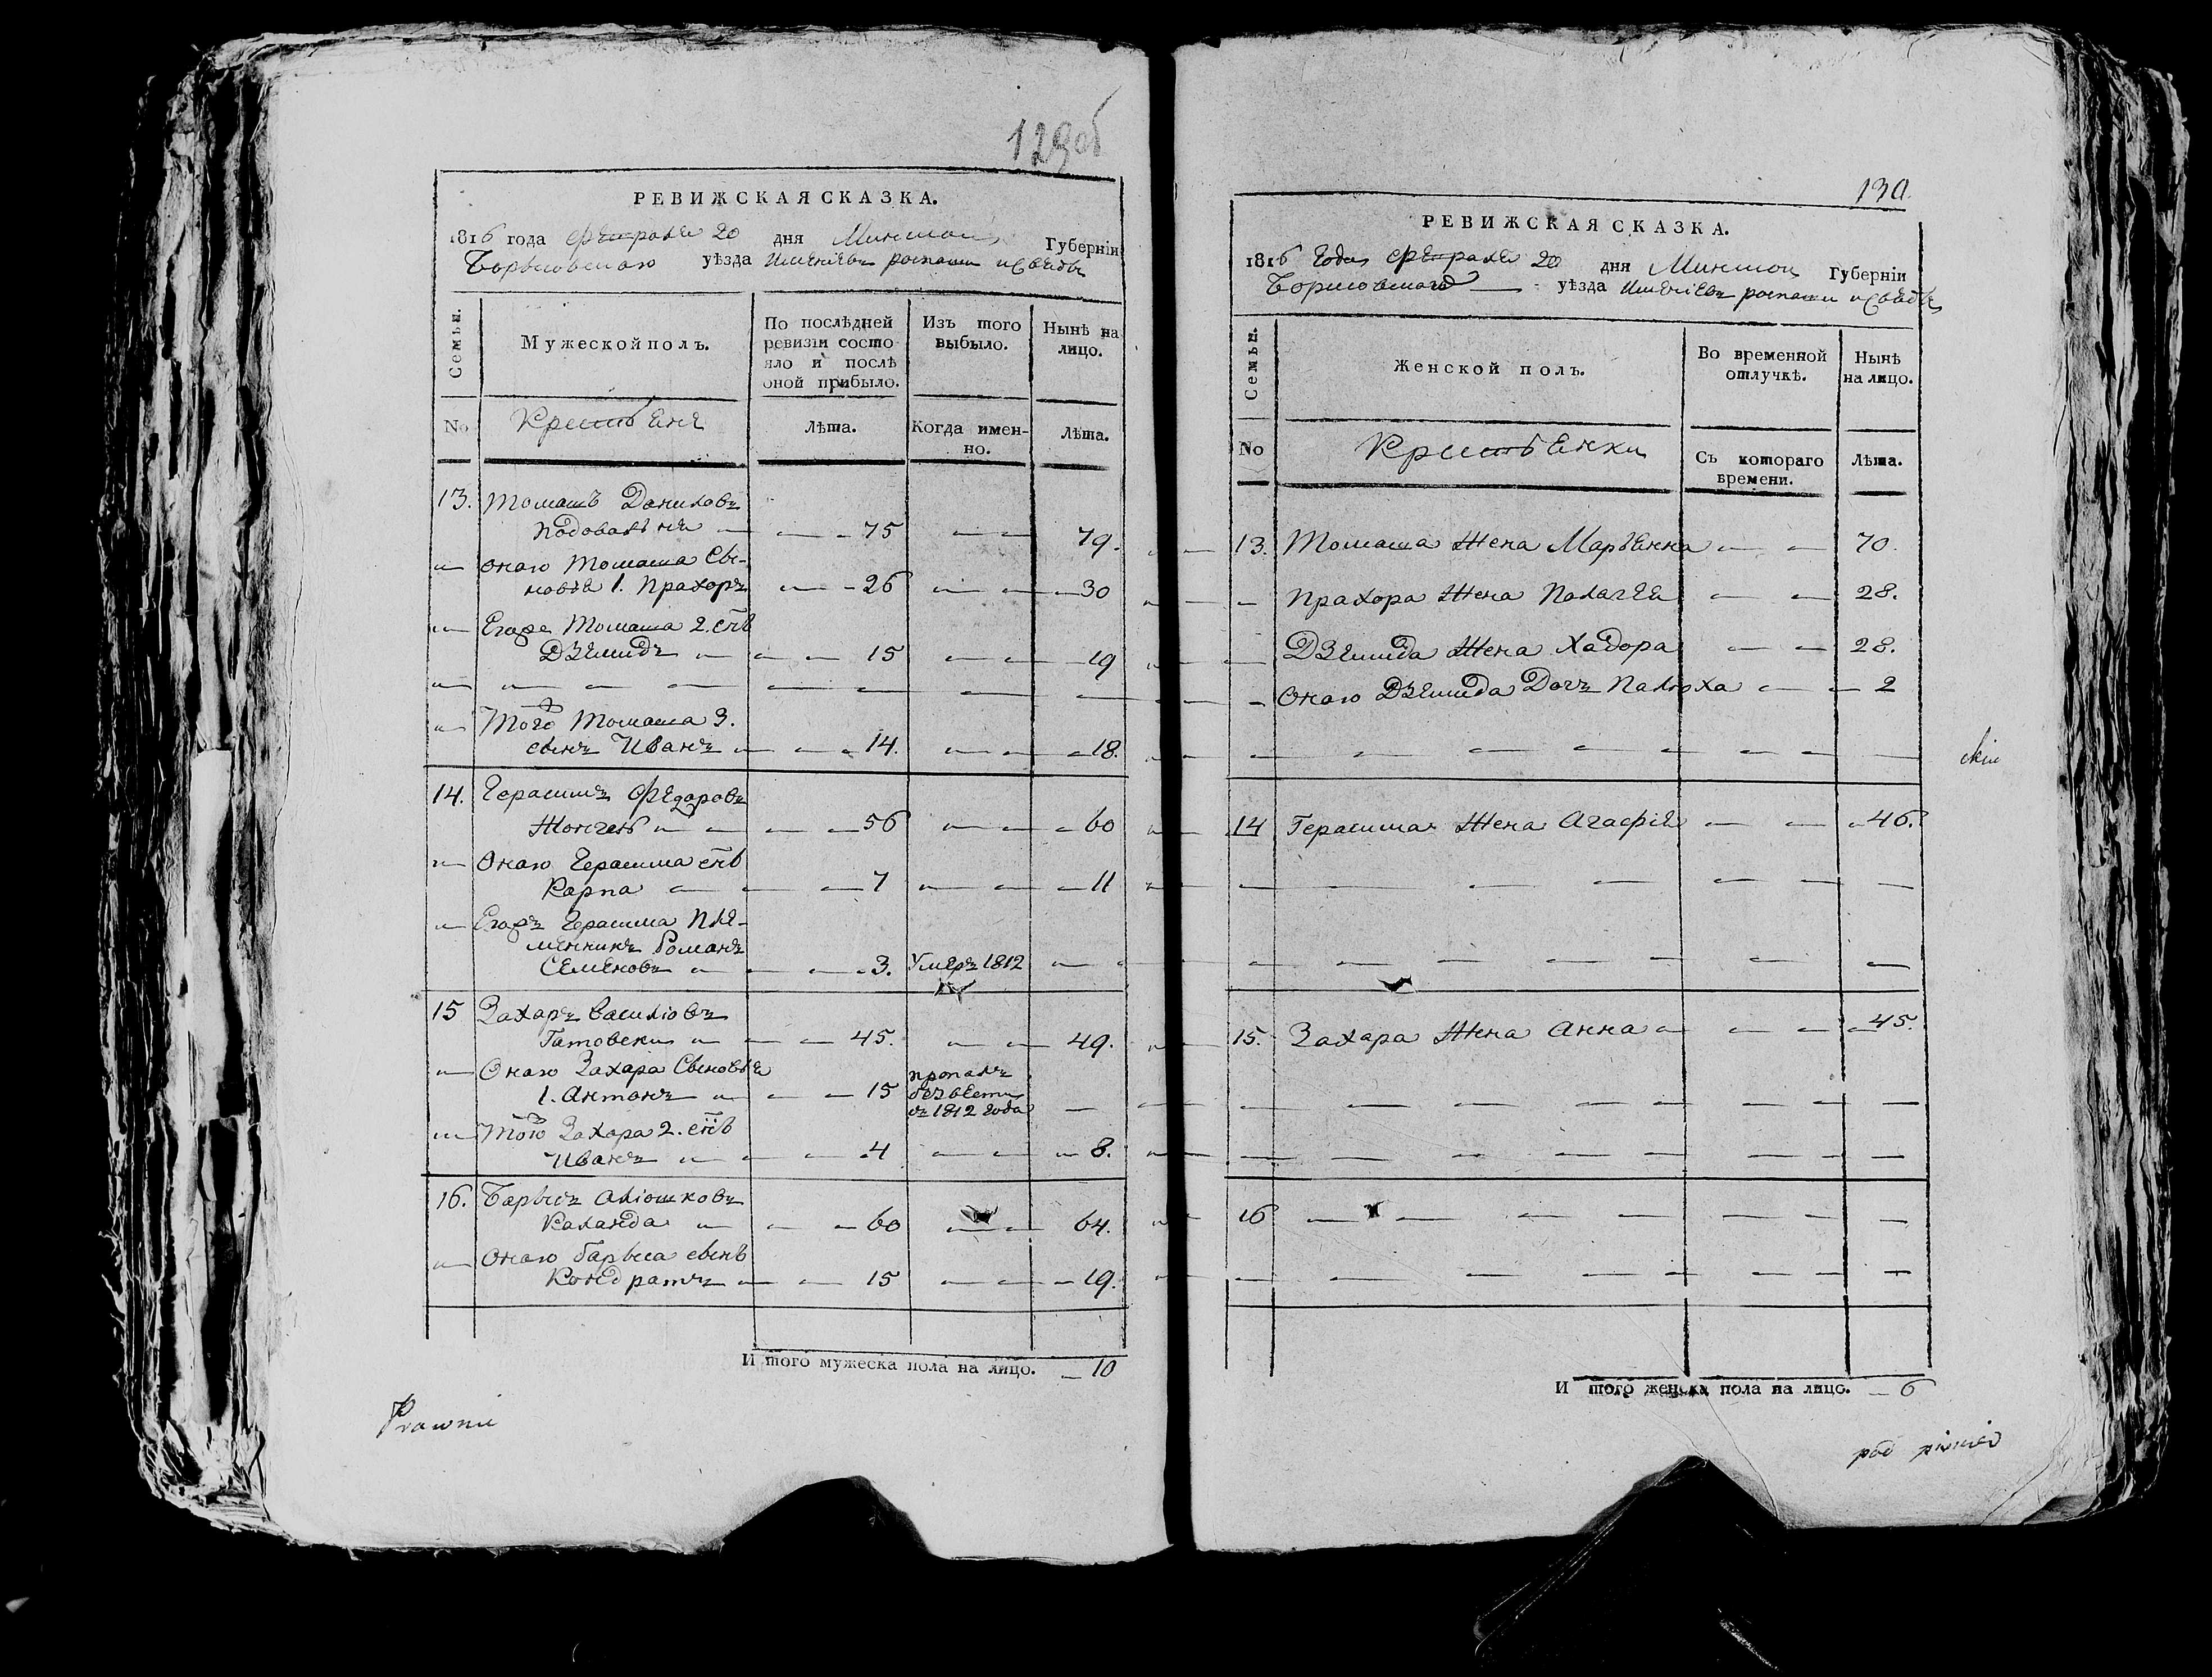 129об
РЕВИЖСКАЯ СКАЗКА.
1816 года февраля 20 дня Минской Губерніи
Борысовскаго уѣзда Именіевъ
Семьи.
Мужеской полъ.
По послѣдней
ревизіи состо
яло и послѣ
оной прибыло.
Изъ того
выбыло.
Нынѣ на
лицо.
No
Крестьяне
Лѣта.
Когда имен-
но.
Лѣта.
13. Томашъ Данилавъ
— 75 — 79.
онаго Томаша Сы-
новья 1. Прахоръ — 26 — 30
Егоже Томаша 2. снъ
Дземидъ — 15 — 19
Того Томаша 3.
сынъ Иванъ — 14. — 18.
14. Герасимъ Федоровъ
— 56 — 60
Онаго Герасима снъ
Карпа — 7 — 11
Герасима Пле-
менникъ Романъ
Семеновъ — 3. Умеръ 1812 —
15 Захаръ Василіовъ
Гатовски — 45. — 49.
Онаго Захара Сыновья
1. Антонъ — 15 пропалъ
без вести
съ 1812 года —
Того Захара 2. снъ
Иванъ — 4 — 8.
16. Барысъ Аліошковъ
Каланда — 60 — 64.
Онаго Барыса сынъ
Кондратъ — 15 — 19.
И того мужеска пола на лицо. — 10
Prawnie
130.
РЕВИЖСКАЯ СКАЗКА.
1816 Года февраля 20 дня Минской Губерніи
Борисовскаго — уѣзда Именіевъ
Семьи.
Женской полъ.
Во временной
отлучкѣ.
Нынѣ
на лицо.
No
Крестьянки
Съ котораго
времени.
Лѣта.
13. Томаша Жена Марьянна — 70.
Прахора Жена Палагея — 28.
Дземида Жена Хадора — 28.
Онаго Дземида Дочъ Палюха — 2
14 Герасима Жена Агафія — 46.
15. Захара Жена Анна — 45.
16
И того женска пола на лицо. — 6
skie